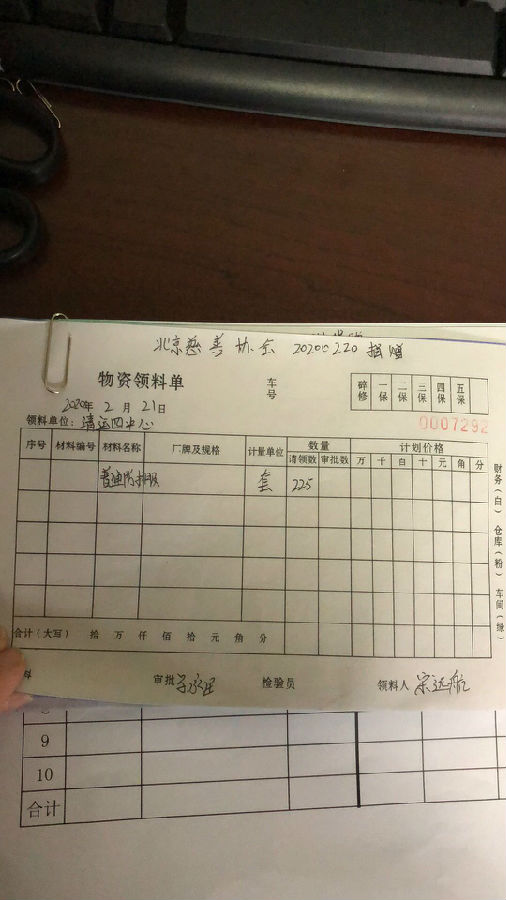 北京慈善协会 20200220 捐赠
物资领料单
车号
碎修 一保 二保 三保 四保 五保
2020年 2月 21日
领料单位：清运四中心
0007292
序号 材料编号 材料名称 厂牌及规格 计量单位 数量 计划价格
请领数 审批数 万 千 百 十 元 角 分
套 225
合计（大写） 拾 万 仟 佰 拾 元 角 分
财务（白） 仓库（粉） 车间（绿）
料 审批 检验员 领料人 宋远航
9
10
合计